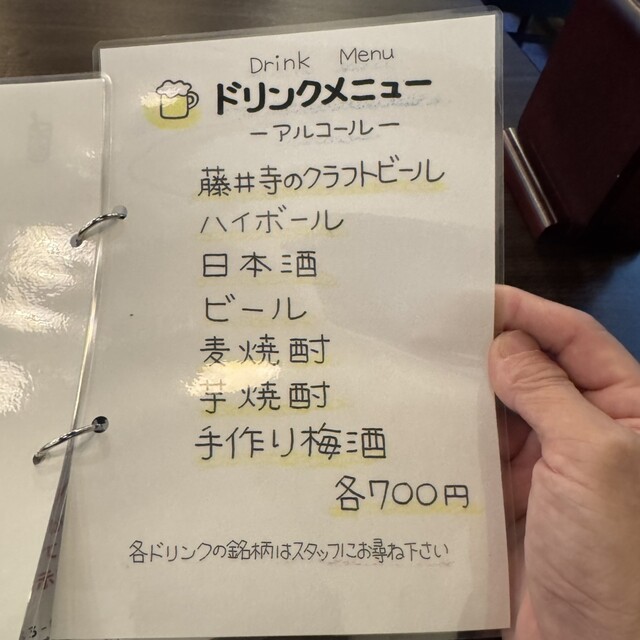 Drink Menu
ドリンクメニュー
ーアルコールー
藤井寺のクラフトビール
ハイボール
日本酒
ビール
麦焼酎
芋焼酎
手作り梅酒
各700円
各ドリンクの銘柄はスタッフにお尋ね下さい